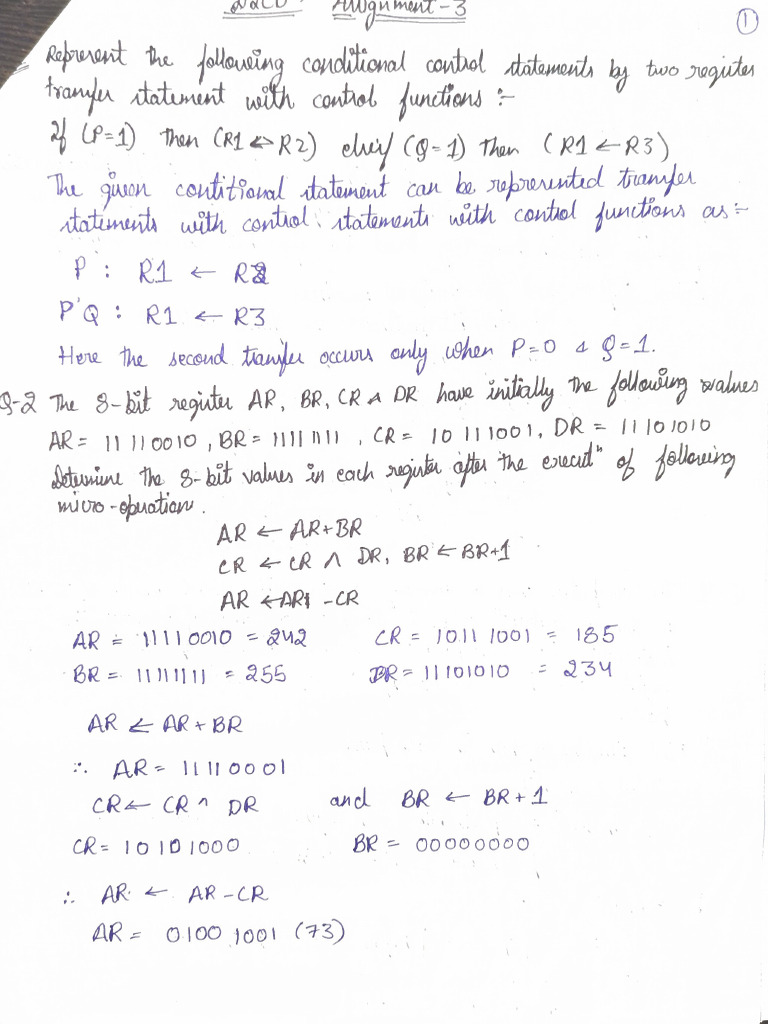 Assignment-3
1
Represent the following conditional control statements by two register
transfer statement with control functions :-
If (P=1) then (R1 ← R2) elseif (Q=1) then (R1 ← R3)
The given contitional statement can be represented transfer
statements with control statements with control functions as :-
P : R1 ← R2
P'Q : R1 ← R3
Here the second transfer occurs only when P=0 & Q=1.
Q-2 The 8-bit register AR, BR, CR & DR have initially the following values
AR = 11110010, BR = 11111111, CR = 10111001, DR = 11101010
Determine the 8-bit values in each register after the executn of following
micro-operation.
AR ← AR+BR
CR ← CR ∧ DR, BR ← BR+1
AR ← AR - CR
AR = 11110010 = 242 CR = 1011 1001 = 185
BR = 11111111 = 255 DR = 11101010 = 234
AR ← AR + BR
∴ AR = 11110001
CR ← CR ∧ DR and BR ← BR + 1
CR = 10101000 BR = 00000000
∴ AR ← AR - CR
AR = 0100 1001 (73)